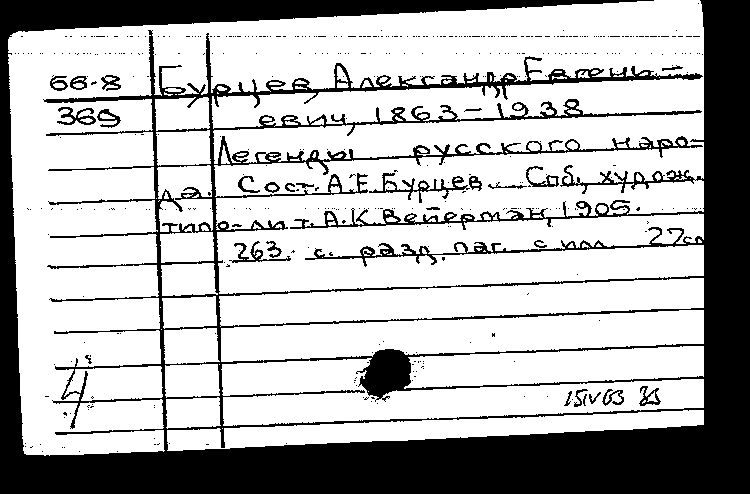 66-8 Бурцев, Александр Евгень-
369 евич, 1863-1938
Легенды русского наро-
да. Сост. А.Е.Бурцев. Спб., худож.
типо-лит. А.К.Вейерман, 1905.
263 с. разд. паг. с илл. 27см
4